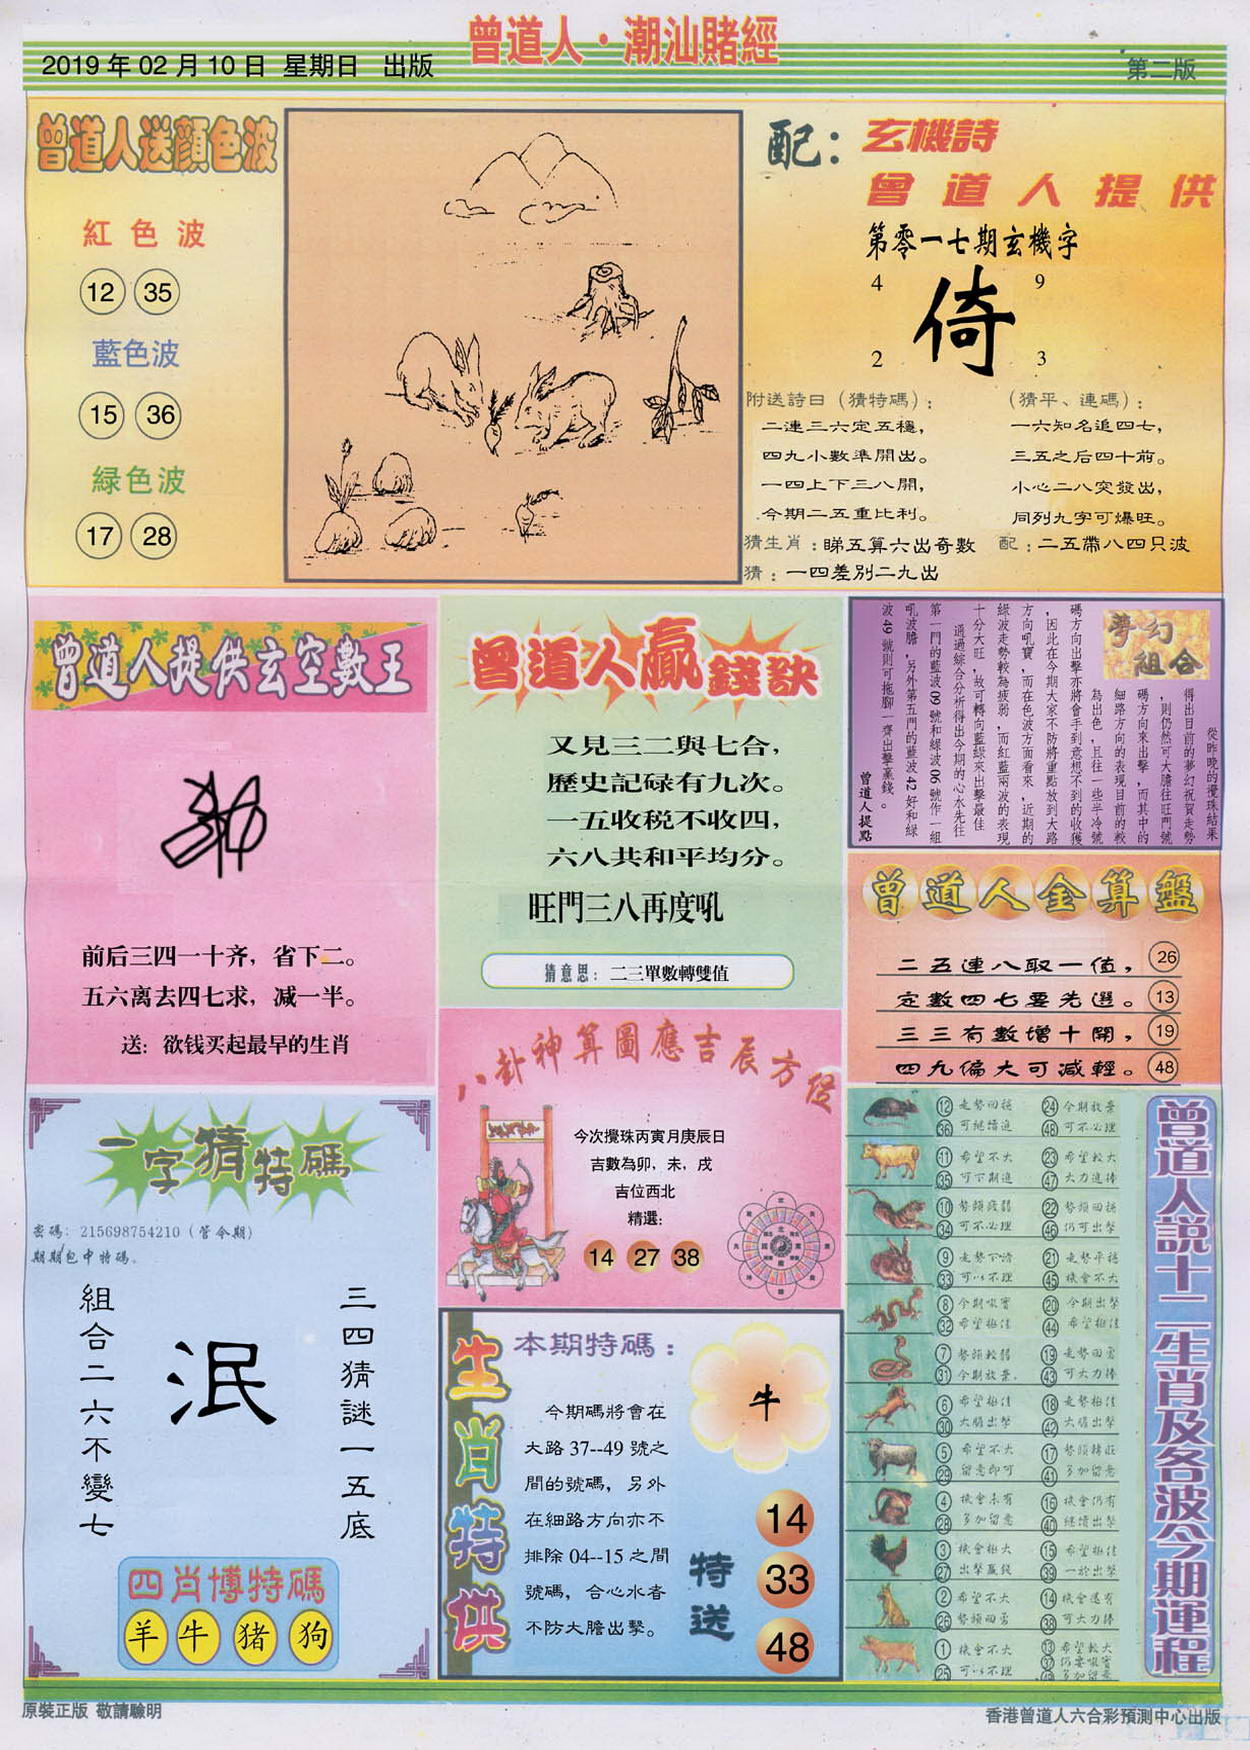 曾道人·潮汕賭經
2019年02月10日 星期日 出版
第二版
曾道人送顏色波
紅色波
12 35
藍色波
15 36
緑色波
17 28
配：
玄機詩
曾道人提供
第零一七期玄機字
4 9
倚
2 3
附送詩曰（猜特碼）：
二連三六定五穩，
四九小數準開出。
一四上下三八開，
今期二五重比利。
（猜平、連碼）：
一六知名追四七，
三五之后四十前。
小心二八突發出，
同列九字可爆旺。
猜生肖：睇五算六出奇數
配：二五帶八四只波
猜：一四差別二九出
曾道人提供玄空數王
前后三四一十齐，省下二。
五六离去四七求，减一半。
送：欲钱买起最早的生肖
曾道人贏錢訣
又見三二與七合，
歷史記碌有九次。
一五收税不收四，
六八共和平均分。
旺門三八再度吼
猜意思：二三單數轉雙值
夢幻
組合
從昨晚的攪珠結果
得出目前的夢幻祝賀走勢
，則仍然可大膽往旺門號
碼方向來出擊，而其中的
細路方向的表現目前的較
為出色，且往一些半冷號
碼方向出擊亦將會手到意想不到的收獲
，因此在今期大家不防將重點放到大路
方向吼寶，而在色波方面看來，近期的
綠波走勢較為疲弱，而紅藍兩波的表現
十分大旺，故可轉向藍綠來出擊最佳
通過綜合分析得出今期的心水先往
第一門的藍波09號和綠波06號作一組
吼波膽，另外第五門的藍波42好和綠
波49號則可拖腳一齊出擊贏錢。
曾道人提點
曾道人金算盤
二五連八取一值， 26
定數四七要先選。 13
三三有數增十開， 19
四九偏大可減輕。 48
八卦神算圖應吉辰方位
今次攪珠丙寅月庚辰日
吉數為卯，未，戌
吉位西北
精選：
14 27 38
一字猜特碼
密碼：215698754210（管令期）
期期包中特碼。
三四猜謎一五底
泯
組合二六不變七
四肖博特碼
羊 牛 猪 狗
生肖特供
本期特碼：
牛
今期碼將會在
大路37--49號之
間的號碼，另外
在細路方向亦不
排除04--15之間
號碼，合心水者
不防大膽出擊。
特送
14
33
48
曾道人説十二生肖及各波今期運程
12 走勢回穩 24 今期放棄
36 可繼續追 48 可不必理
11 希望不大 23 希望較大
35 可下期追 47 大力追捧
10 勢頭疲弱 22 勢頭回穩
34 可不必理 46 仍可出擊
9 走勢下滑 21 走勢平穩
33 可以不理 45 機會不大
8 今期吸寶 20 今期出擊
32 希望極佳 44 希望極佳
7 勢頭較弱 19 走勢回勇
31 今期放棄. 43 可大力捧
6 希望極佳 18 走勢極佳
30 大膽出擊 42 大膽出擊
5 希望不大 17 勢頭轉旺
29 留意即可 41 多加留意
4 機會未有 16 機會仍有
28 多加留意 40 繼續出擊
3 機會極大 15 希望極佳
27 出擊贏錢 39 一於出擊
2 希望不大 14 機會還有
26 勢頭回勇 38 可大力捧
1 機會不大 13 希望較大
25 可以不理 37 仍要吸寶
49 多加留意
原裝正版 敬請驗明
香港曾道人六合彩預測中心出版